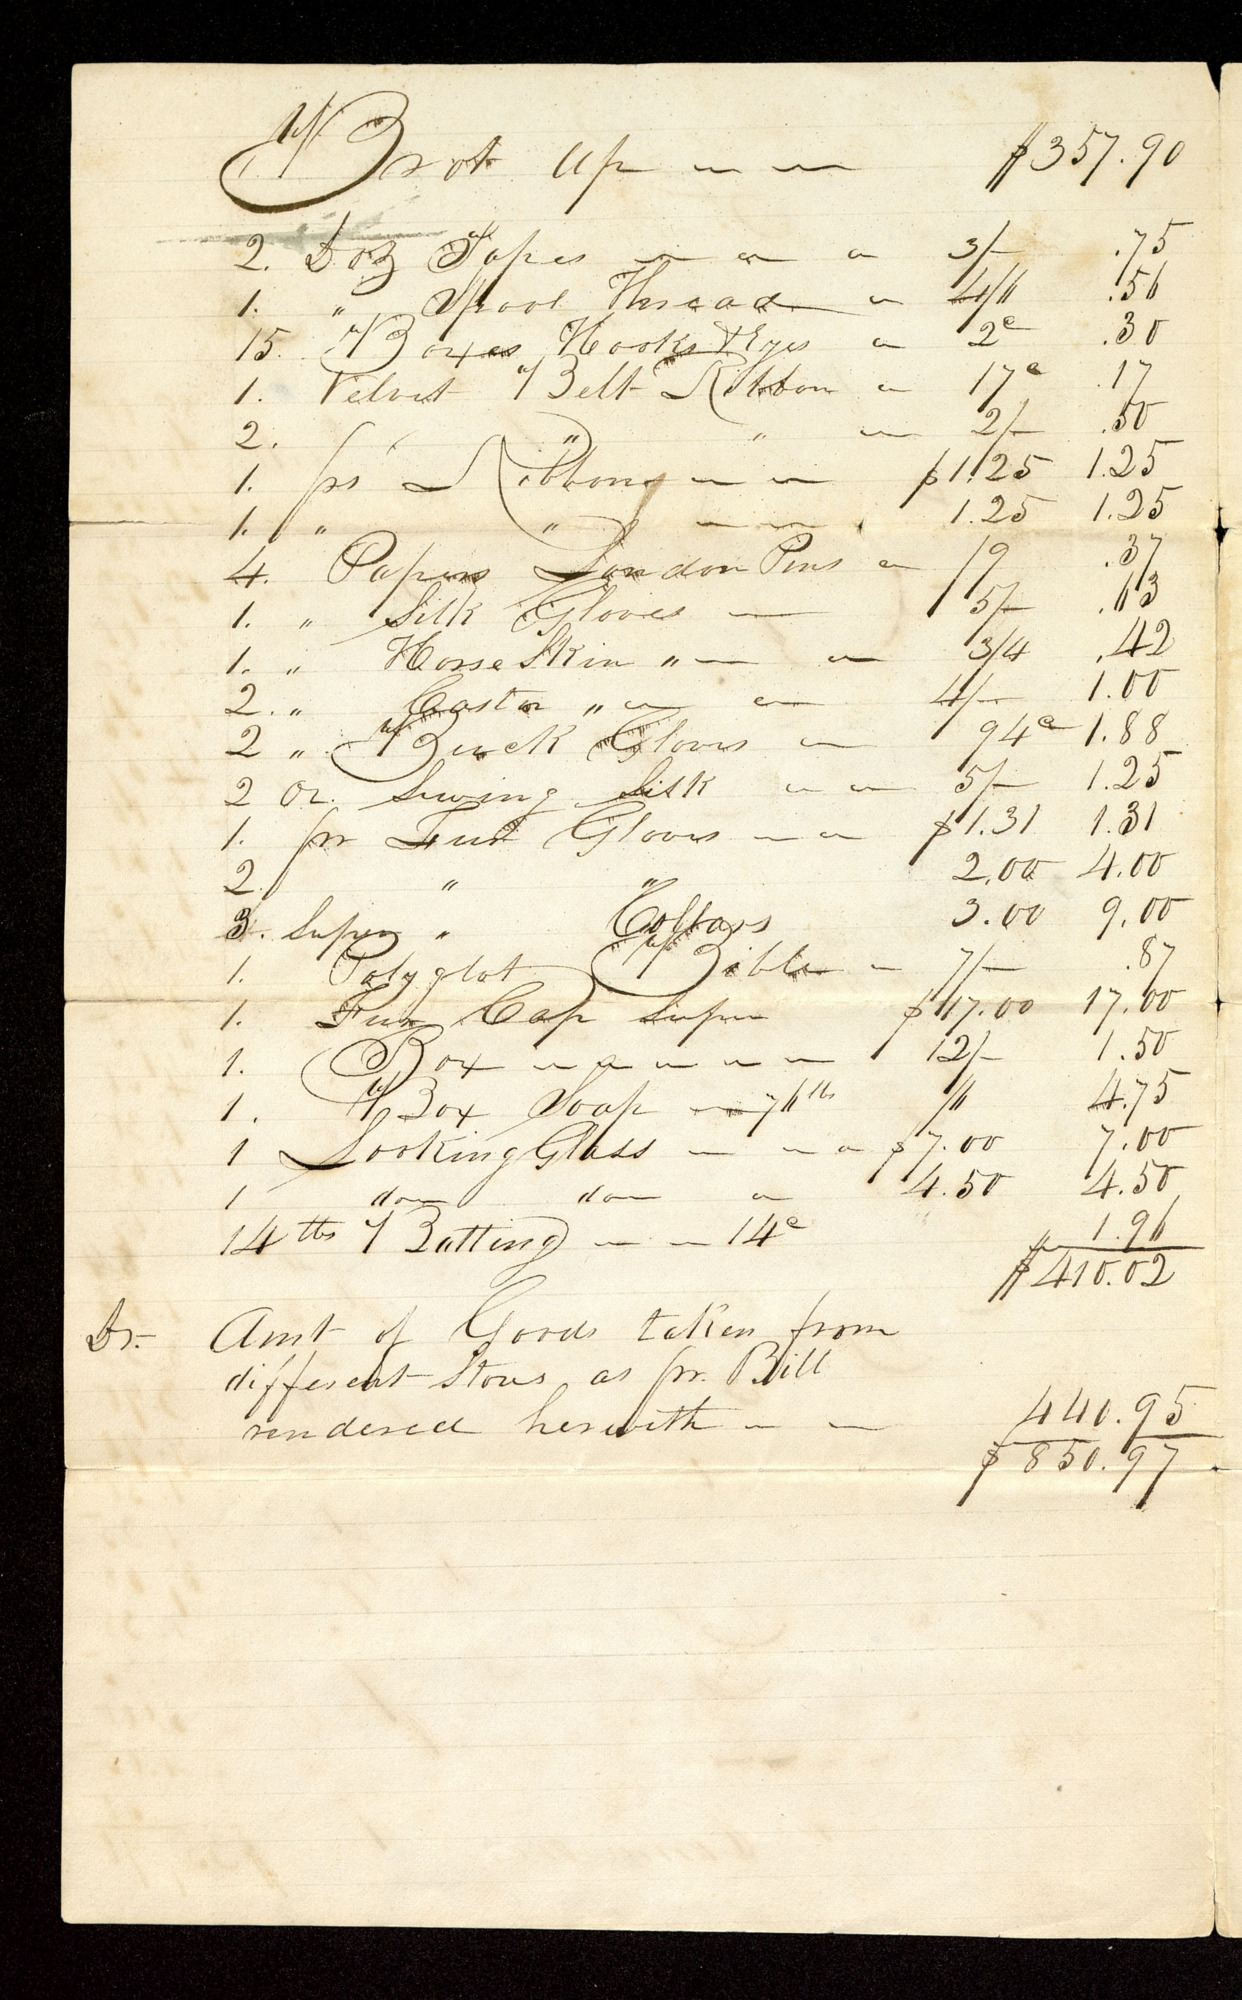 Brot Up $357.90
2. Doz Tapes 3/- .75
1. " Spool Thread 4/6 .56
15. Boxes Hooks & Eyes 2c .30
1. Velvet Belt Ribbon 17c .17
2. " " 2/- .50
1. ps Ribbons $1.25 1.25
1. " " 1.25 1.25
4. Papers London Pins 19 .37
1. " Silk Gloves 5/- .63
1. " Horse Skin " 3/4 .42
2. " Castor " 4/- 1.00
2 " Buck Gloves 94c 1.88
2 oz. Sewing Silk 5/- 1.25
1. pr Fur Gloves $1.31 1.31
2. " " 2.00 4.00
3. Super " Collars 3.00 9.00
1. Polyglot Bible 7/- .87
1. Fur Cap Super $17.00 17.00
1. Box 12/- 1.50
1. Box Soap 76 lbs /6 4.75
1 Looking Glass $7.00 7.00
1 " do " do 4.50 4.50
14 lbs Batting 14c 1.96
$410.02
Dr. Amt of Goods taken from
different Stores as pr. Bill
rendered herewith 440.95
$850.97